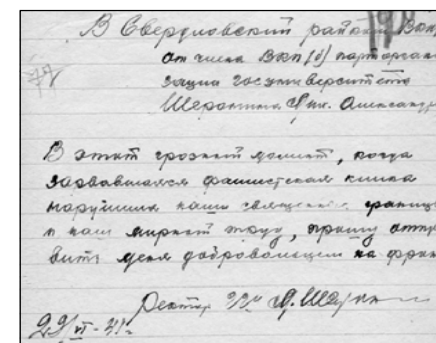 В Свердловский райком ВКП
от члена ВКП(б) парторгани
зации госуниверситета
Александр
В этот грозный момент, когда
зарвавшаяся фашистская клика
нарушила наши священные границы
и наш мирный труд, прошу отпра
вить меня добровольцем на фрон
Ректор
29/VI-41г.